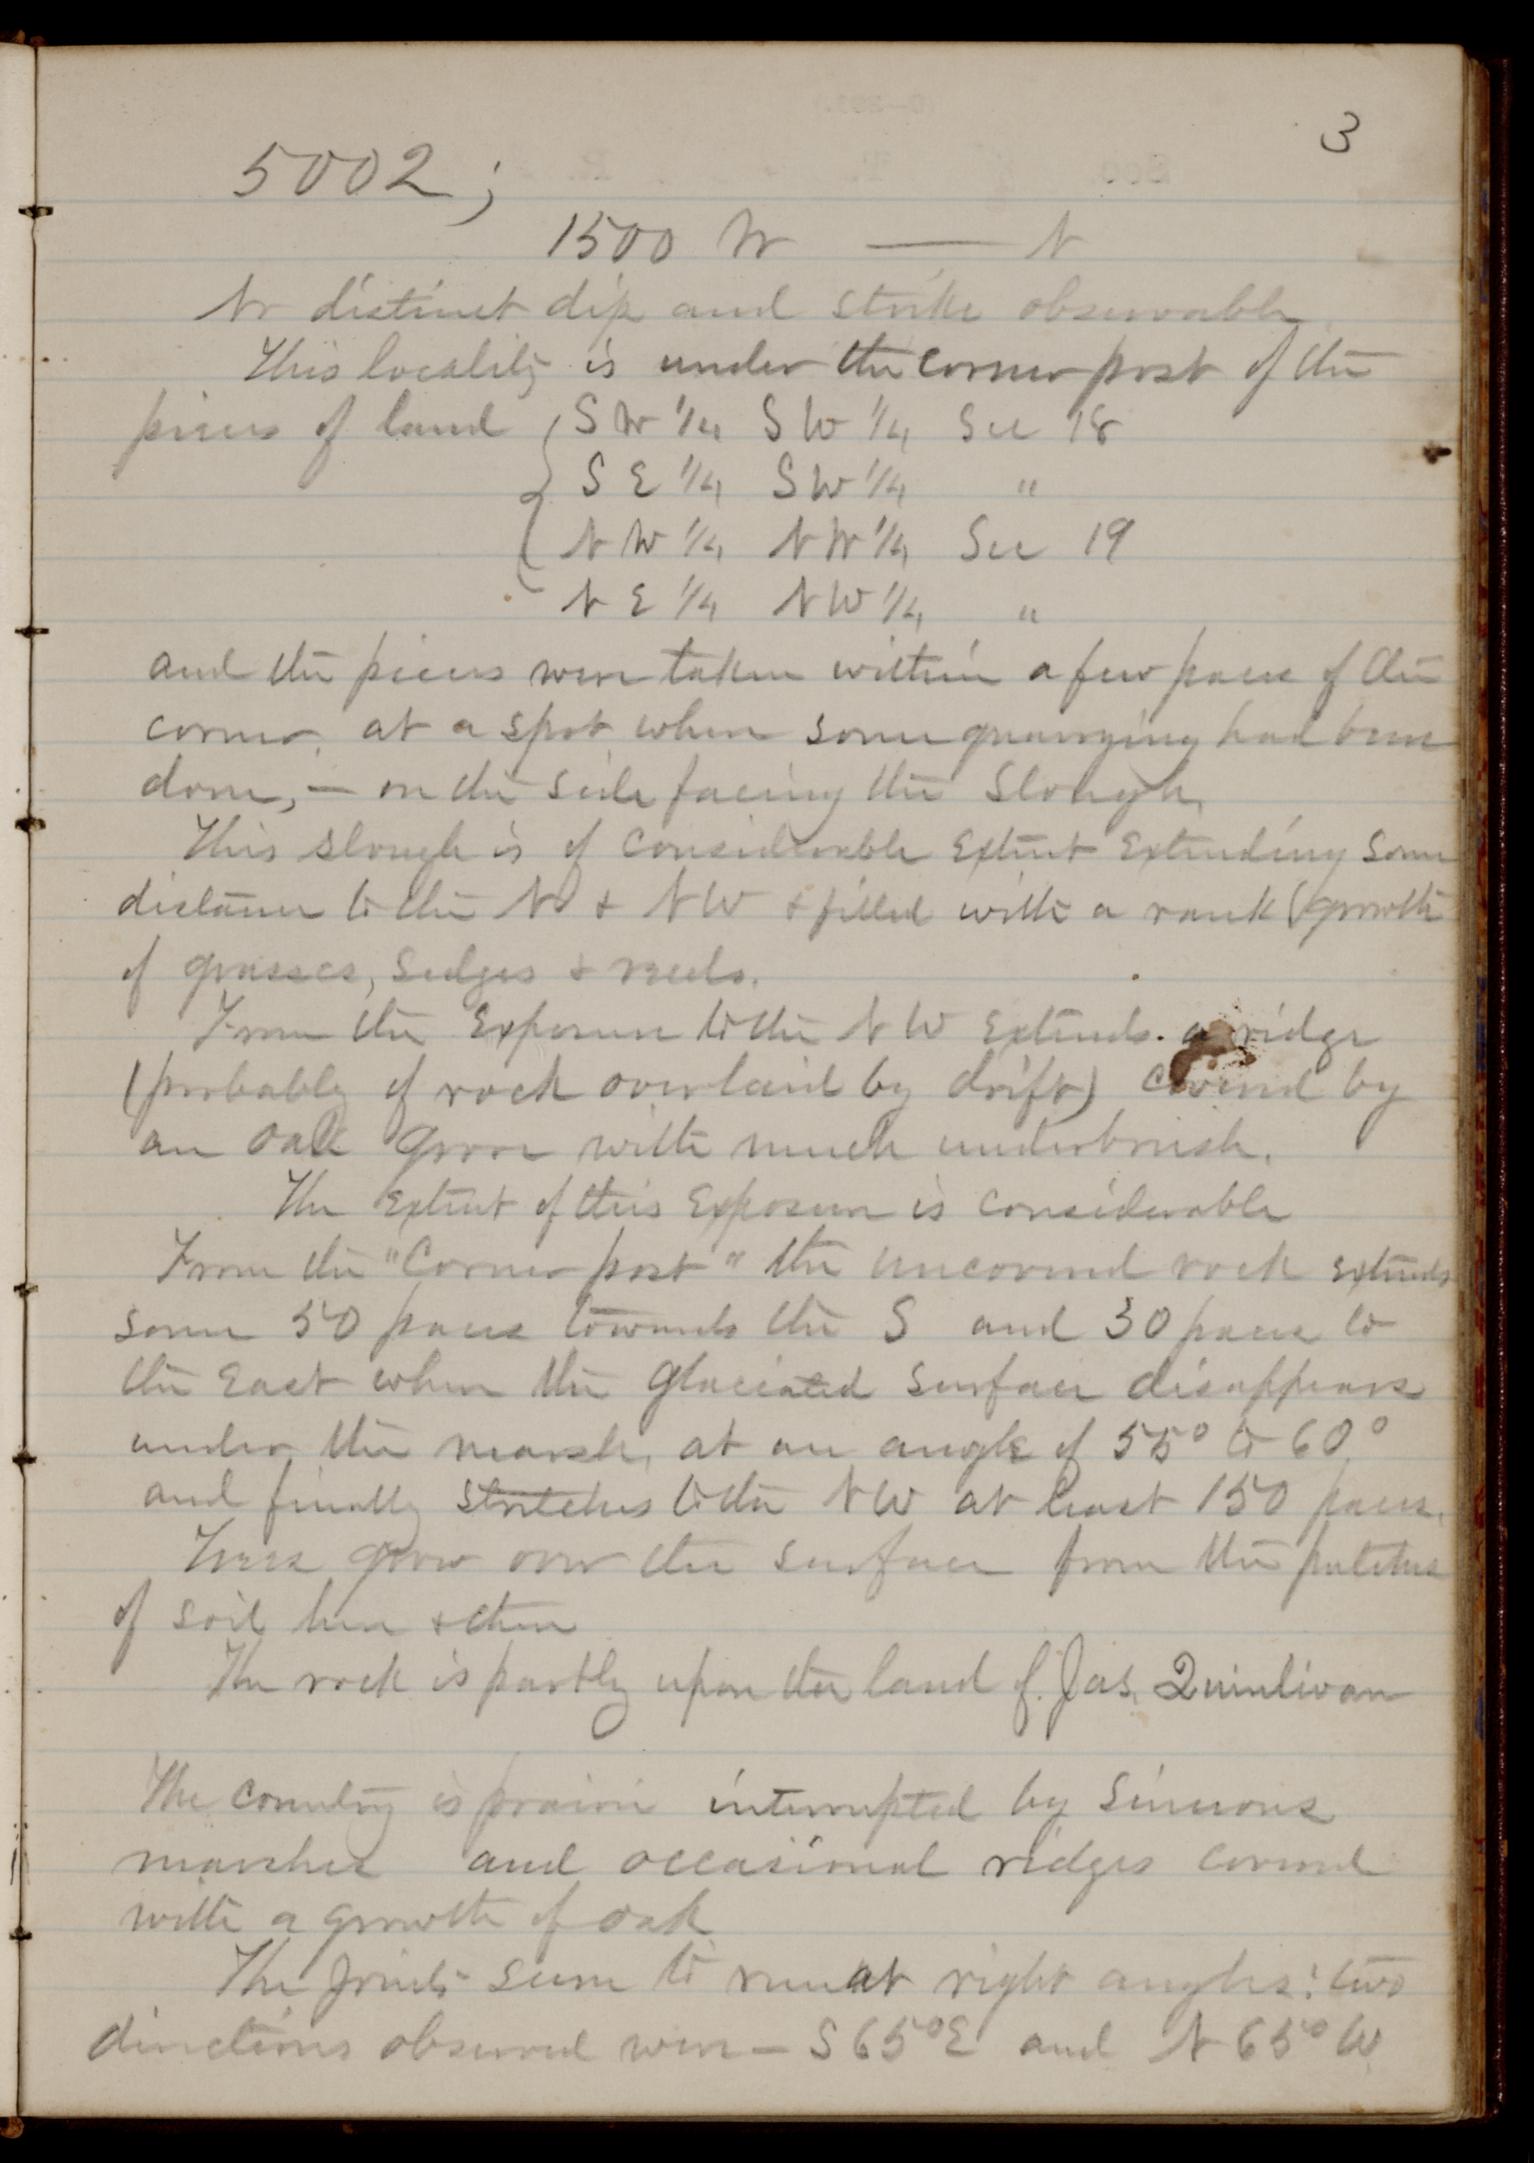 3
5002;
1500 W — N
No distinct dip and strike observable.
This locality is under the corner post of the
pieces of land { SW 1/4 SW 1/4 Sec 18
SE 1/4 SW 1/4 "
NW 1/4 NW 1/4 Sec 19
NE 1/4 NW 1/4 "
and the pieces were taken within a few paces of the
corner, at a spot where some quarrying had been
done, — on the side facing the Slough.
This slough is of considerable extent extending some
distance to the N & NW & filled with a rank growth
of grasses, sedges & reeds.
From the Exposure to the NW extends a ridge
(probably of rock overlaid by drift) covered by
an oak grove with much underbrush.
The Extent of this Exposure is considerable
From the "Corner post" the uncovered rock extends
some 50 paces towards the S and 30 paces to
the East where the glaciated surface disappears
under the marsh, at an angle of 55° to 60°
and finally stretches to the NW at least 150 paces.
Trees grow over the surface from the patches
of soil here & there
The rock is partly upon the land of Jas. Quinlivan
The country is prairie interrupted by sinuous
marshes and occasional ridges covered
with a growth of oak
The joints seem to run at right angles: two
directions observed were — S 65° E and N 65° W